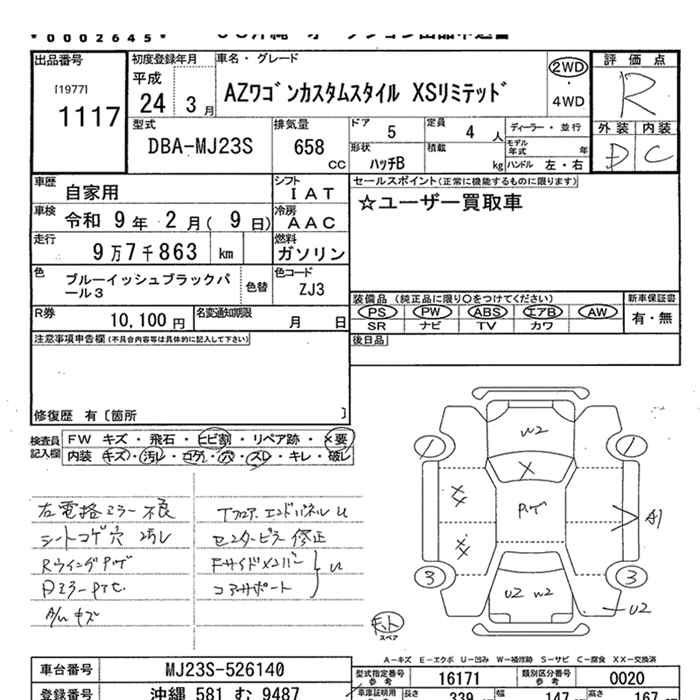 *0002645*
出品番号
[1977]
1117
初度登録年月
平成
24 3月
車名・グレード
AZワゴンカスタムスタイル XSリミテッド
2WD
・
4WD
評価点
R
外装 内装
D C
型式
DBA-MJ23S
排気量
658
CC
ドア 5
定員 4 人
形状
ハッチB
積載
kg
ディーラー・並行
モデル年式 年
ハンドル 左・右
車歴
自家用
シフト
IAT
車検
令和 9年 2月( 9日)
冷房
AAC
走行
9万7千863 km
燃料
ガソリン
色
ブルーイッシュブラックパール3
色替
色コード
ZJ3
R券
10,100 円
名変通知期限
月 日
セールスポイント(正常に機能するものに限ります)
☆ユーザー買取車
装備品 (純正品に限り○をつけてください)
PS PW ABS エアB AW
SR ナビ TV カワ
新車保証書
有・無
後日品
注意事項申告欄(不具合内容等は具体的に記入して下さい)
修復歴 有〔箇所 〕
検査員記入欄
FW キズ・飛石・ヒビ割・リペア跡・×要
内装 キズ・汚レ・コゲ・穴・スレ・キレ・破レ
左電格ミラー不良
シートコゲ穴 汚レ
A/W キズ
センターピラー 修正
Fサイドメンバー
コアサポート
W2
X
1
1
XX
XX
A1
3
3
U2 W2
U2
スペア
A-キズ E-エクボ U-凹み W-補修跡 S-サビ C-腐食 XX-交換済
車台番号
MJ23S-526140
型式指定番号
参考
16171
類別区分番号
参考
0020
登録番号
沖縄 581 む 9487
車庫証明用
長さ 339
幅 147
高さ 167